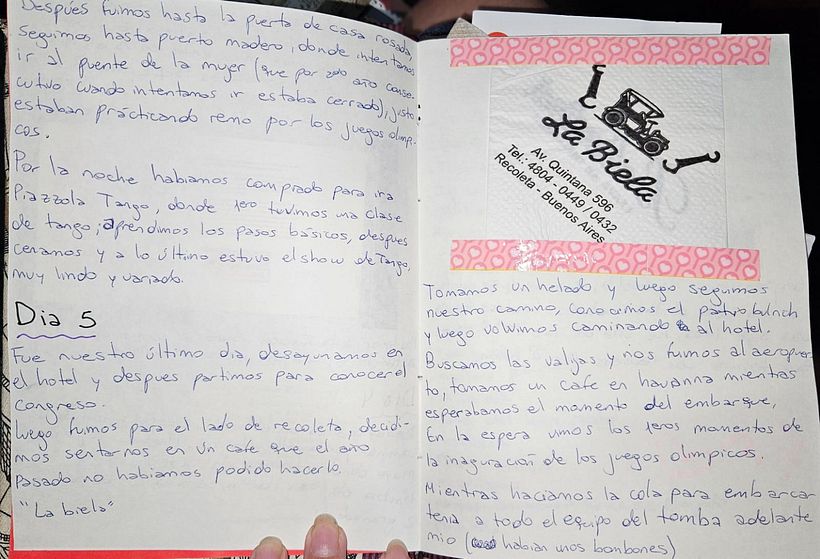 Después fuimos hasta la puerta de casa rosada,
seguimos hasta puerto madero, donde intentamos
ir al puente de la mujer (que por 2do año conse-
cutivo cuando intentamos ir estaba cerrado), justo
estaban prácticando remo por los juegos olimpi-
cos.
Por la noche habiamos comprado para ir a
Piazzola Tango, donde 1ero tuvimos una clase
de tango, aprendimos los pasos básicos, despues
cenamos y a lo último estuvo el show de Tango,
muy lindo y variado.
Dia 5
Fue nuestro último dia, desayunamos en
el hotel y despues partimos para conocer el
congreso.
Luego fuimos para el lado de recoleta, decidi-
mos sentarnos en un cafe que el año
pasado no habiamos podido hacerlo.
"La biela"
La Biela
Av. Quintana 596
Tel.: 4804 - 0449 / 0432
Recoleta - Buenos Aires
Tomamos un helado y luego seguimos
nuestro camino, conocimos el patio bullrich
y luego volvimos caminando al hotel.
Buscamos las valijas y nos fuimos al aeropuer-
to, tomamos un cafe en havanna mientras
esperabamos el momento del embarque,
En la espera vimos los 1eros momentos de
la inaguración de los juegos olimpicos.
Mientras haciamos la cola para embarcar
tenia a todo el equipo del tomba adelante
mio (habian unos bonbones)